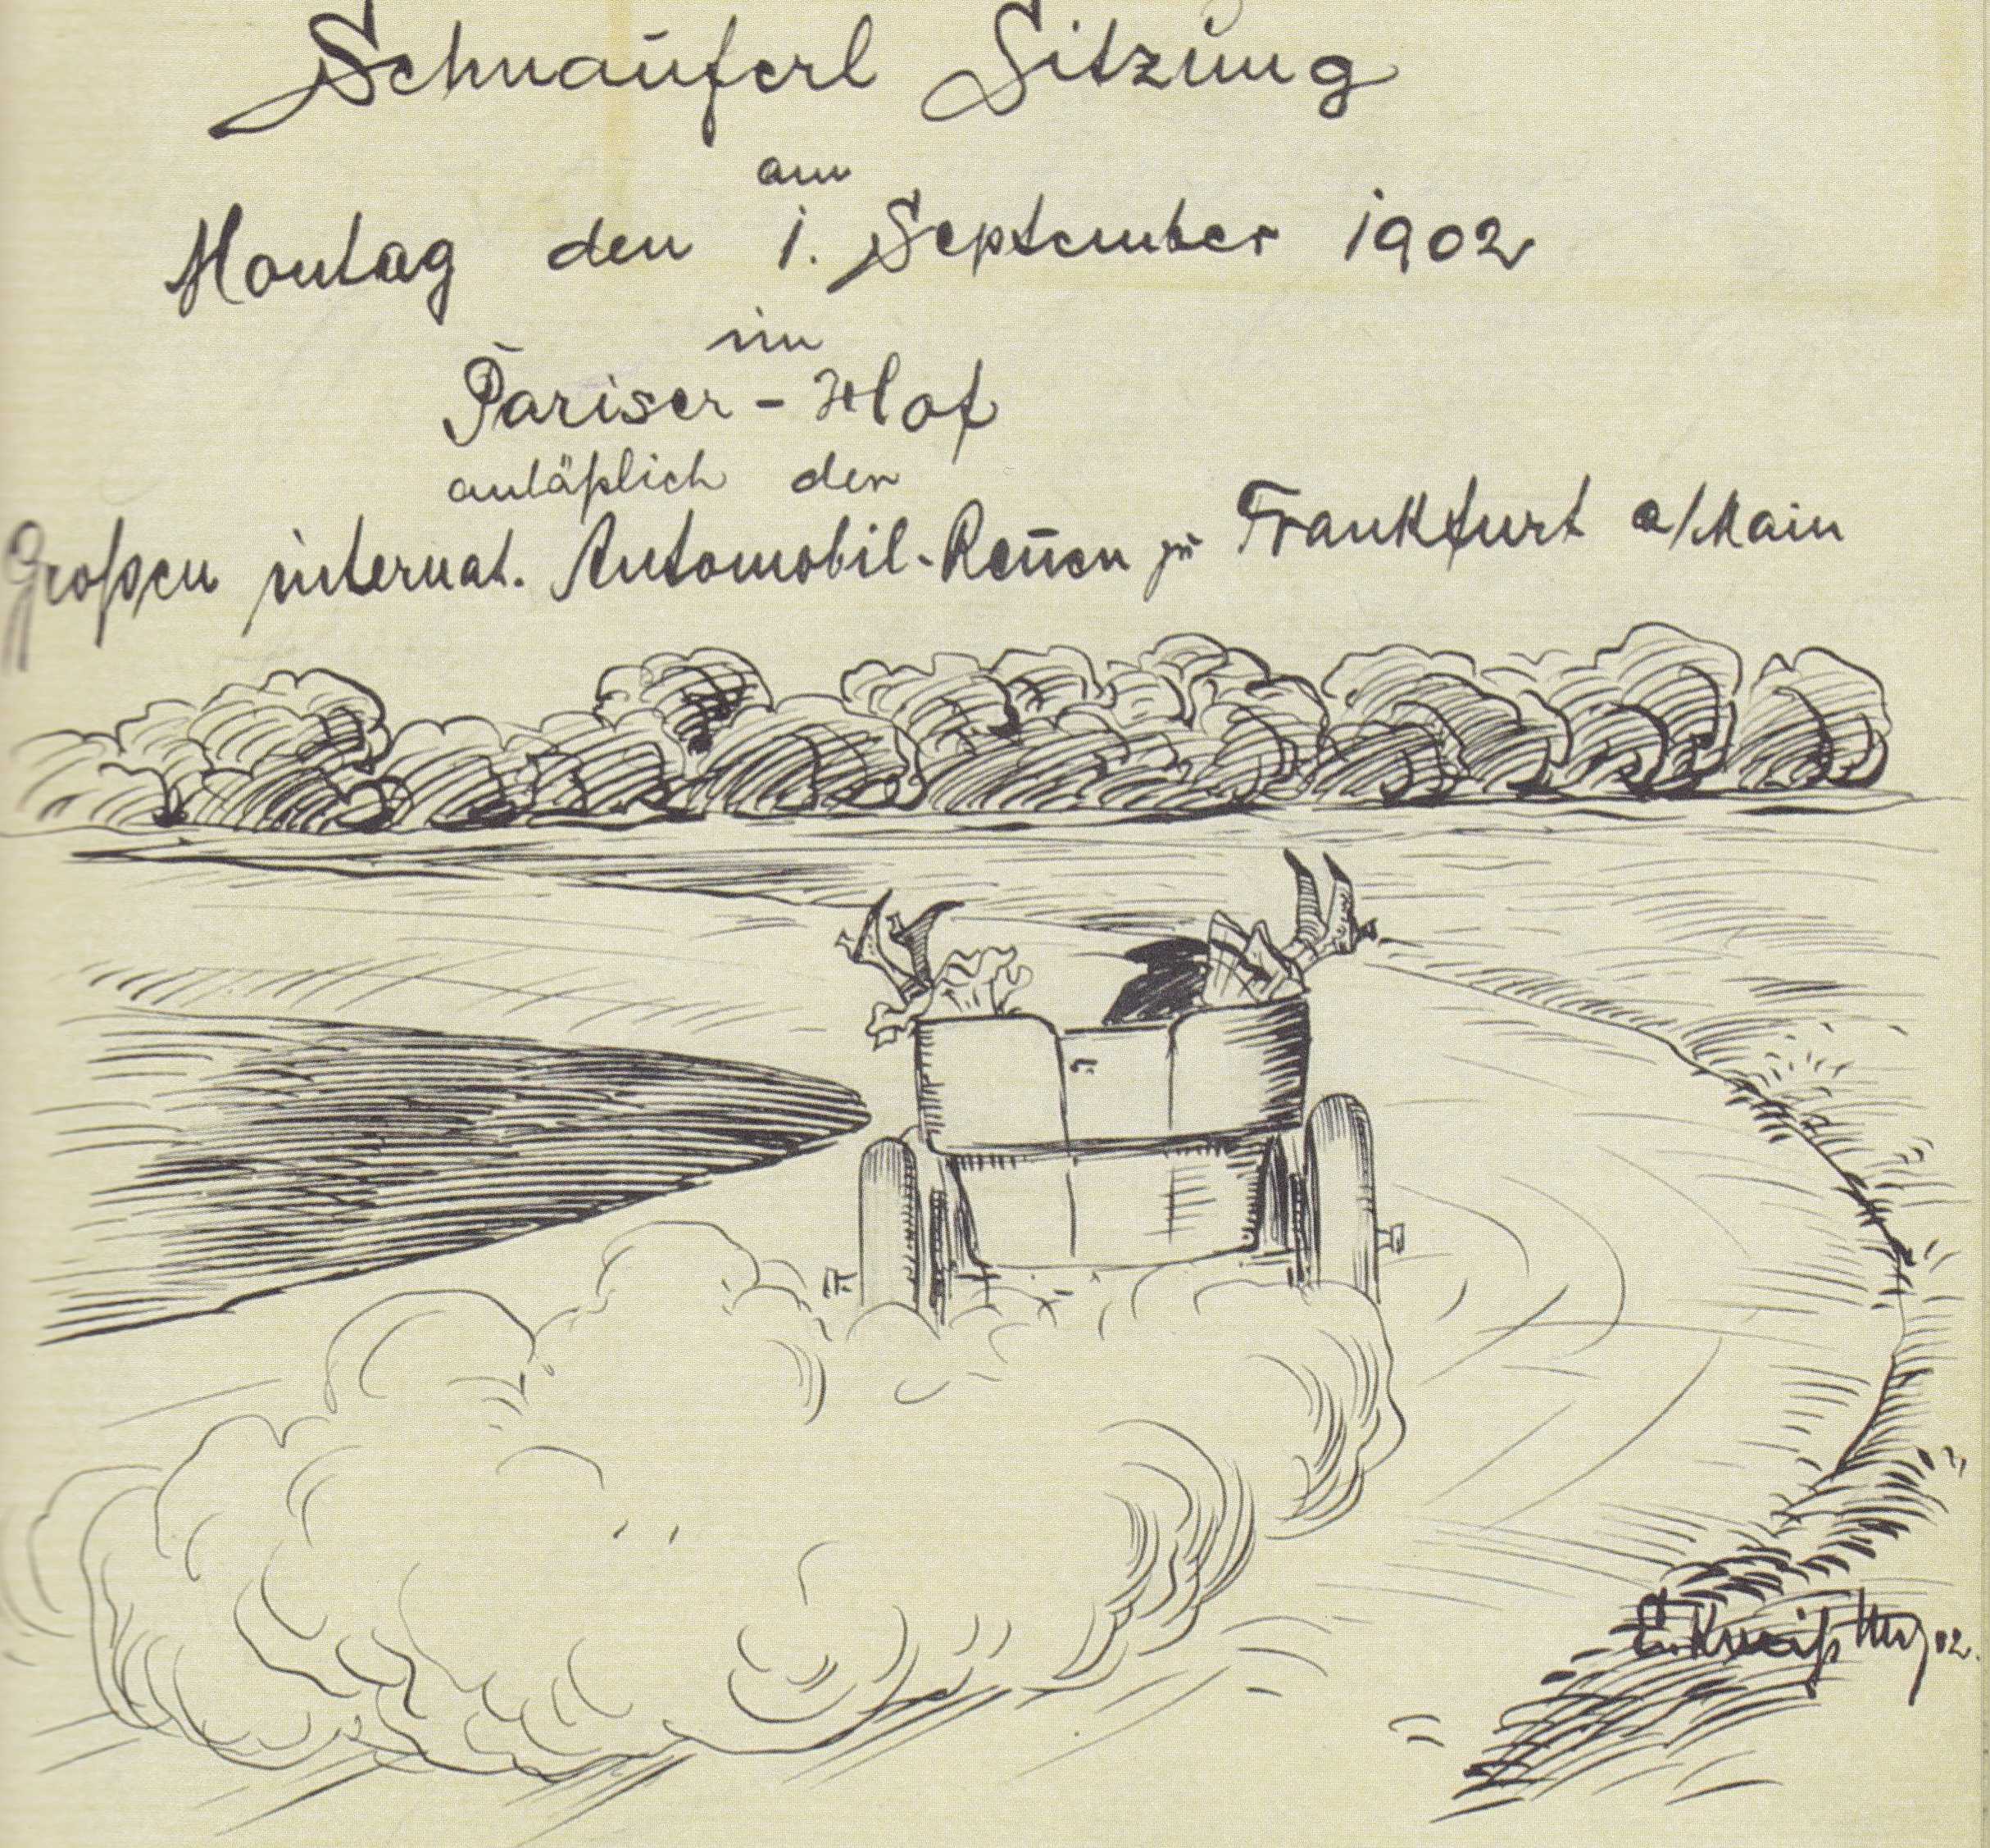 Schnauferl Sitzung
am
Montag den 1. September 1902
im
Pariser-Hof
anläßlich der
Großen internat. Automobil-Ren̄en zu Frankfurt a/Main
E. Kneiß 02.